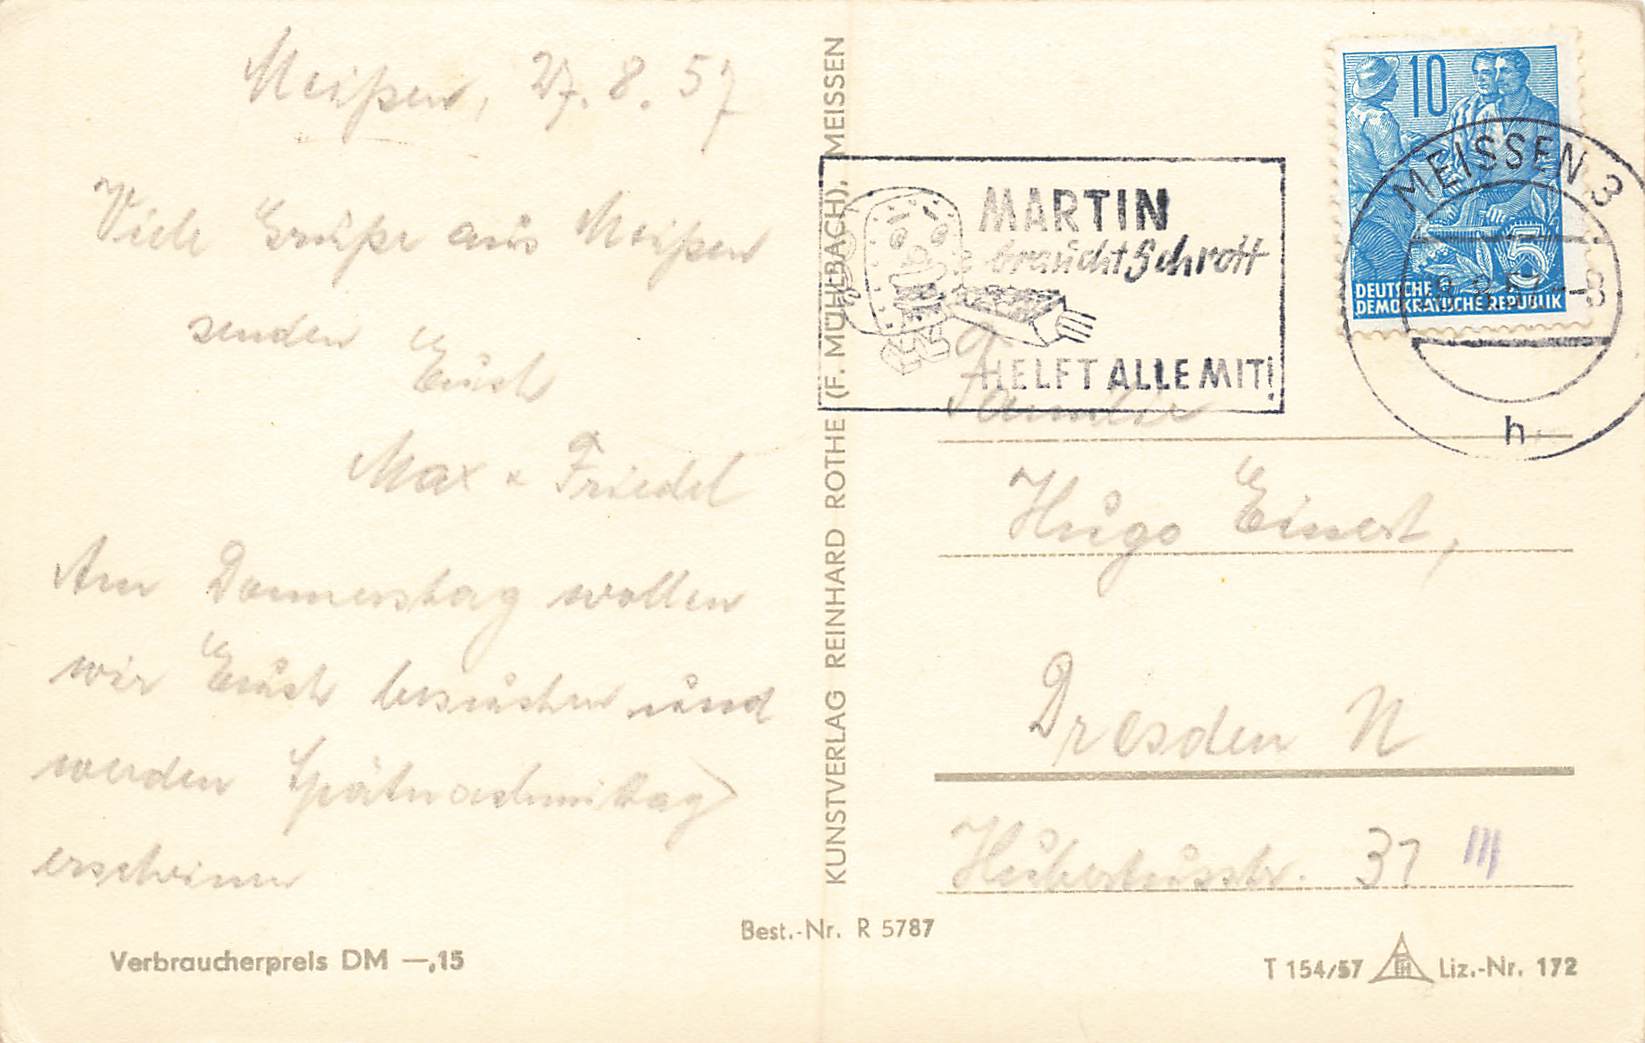 Meißen, 27.8.57
Viele Grüße aus Meißen
senden
Euch
Max + Friedel
Am Donnerstag wollen
wir Euch besuchen und
werden Spätnachmittag
erscheinen
Verbraucherpreis DM —,15
Best.-Nr. R 5787
KUNSTVERLAG REINHARD ROTHE (F. MÜHLBACH), MEISSEN
MARTIN
braucht Schrott
HELFT ALLE MIT!
10
5
DEUTSCHE
DEMOKRATISCHE REPUBLIK
MEISSEN 3
h
Familie
Hugo Einert,
Dresden N
Hubertusstr. 37 III
T 154/57 Liz.-Nr. 172